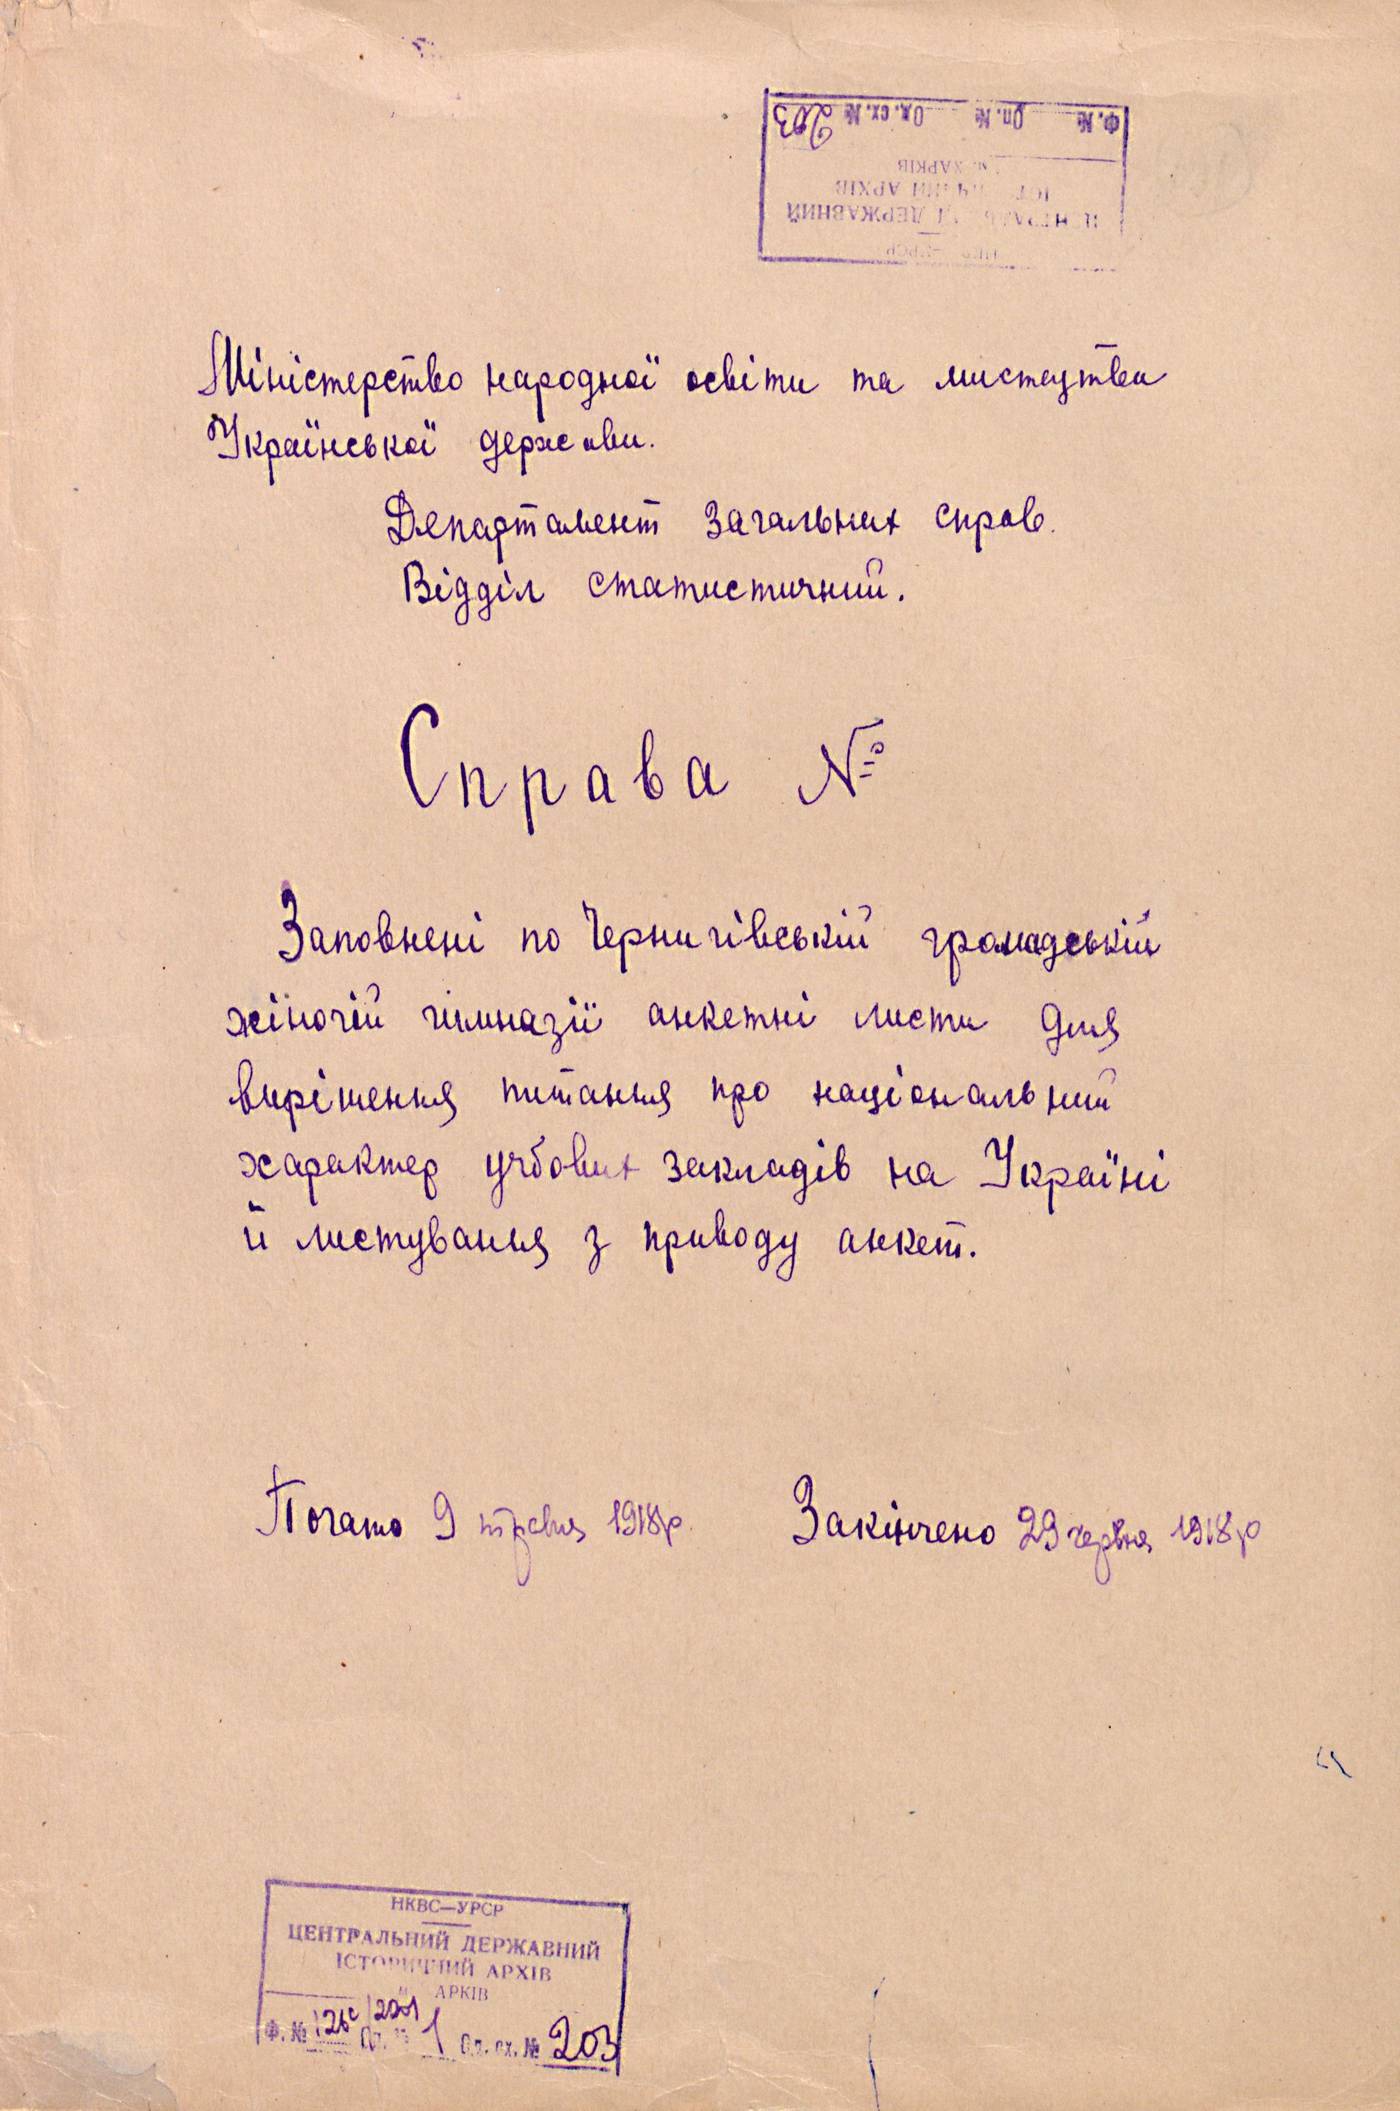 Ф. № Оп. № Од. сх. № 203
м. ХАРКІВ
ІСТОРИЧНИЙ АРХІВ
ЦЕНТРАЛЬНИЙ ДЕРЖАВНИЙ
НКВС—УРСР
Міністерство народньої освіти та мистецтва
Української держави.
Департамент загальних справ.
Відділ статистичний.
Справа №
Заповнені по Чернигівській громадській
жіночій гімназії анкетні листи для
вирішення питання про національний
характер учбових закладів на Україні
й листування з приводу анкет.
Почато 9 травня 1918 р. Закінчено 29 червня 1918 р
НКВС—УРСР
ЦЕНТРАЛЬНИЙ ДЕРЖАВНИЙ
ІСТОРИЧНИЙ АРХІВ
м. ХАРКІВ
Ф. № 2201 Оп. № 1 Од. сх. № 203